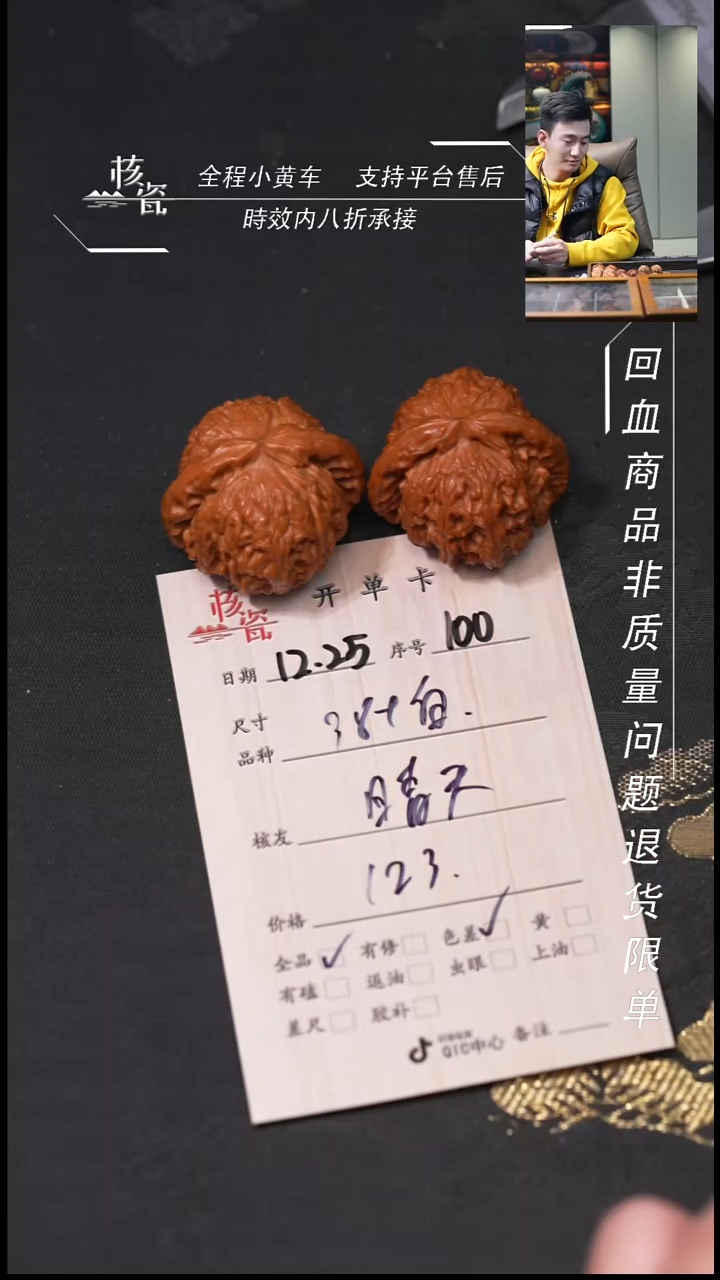 核瓷
全程小黄车 支持平台售后
時效内八折承接
回血商品非质量问题退货限单
核瓷 开单卡
日期 12.25 序号 100
尺寸
品种 38+白.
核友 晴天
价格 123.
全品 ✓ 有修 色差 ✓ 黄
有磕 返油 虫眼 上油
差尺 胶补
QIC中心 备注